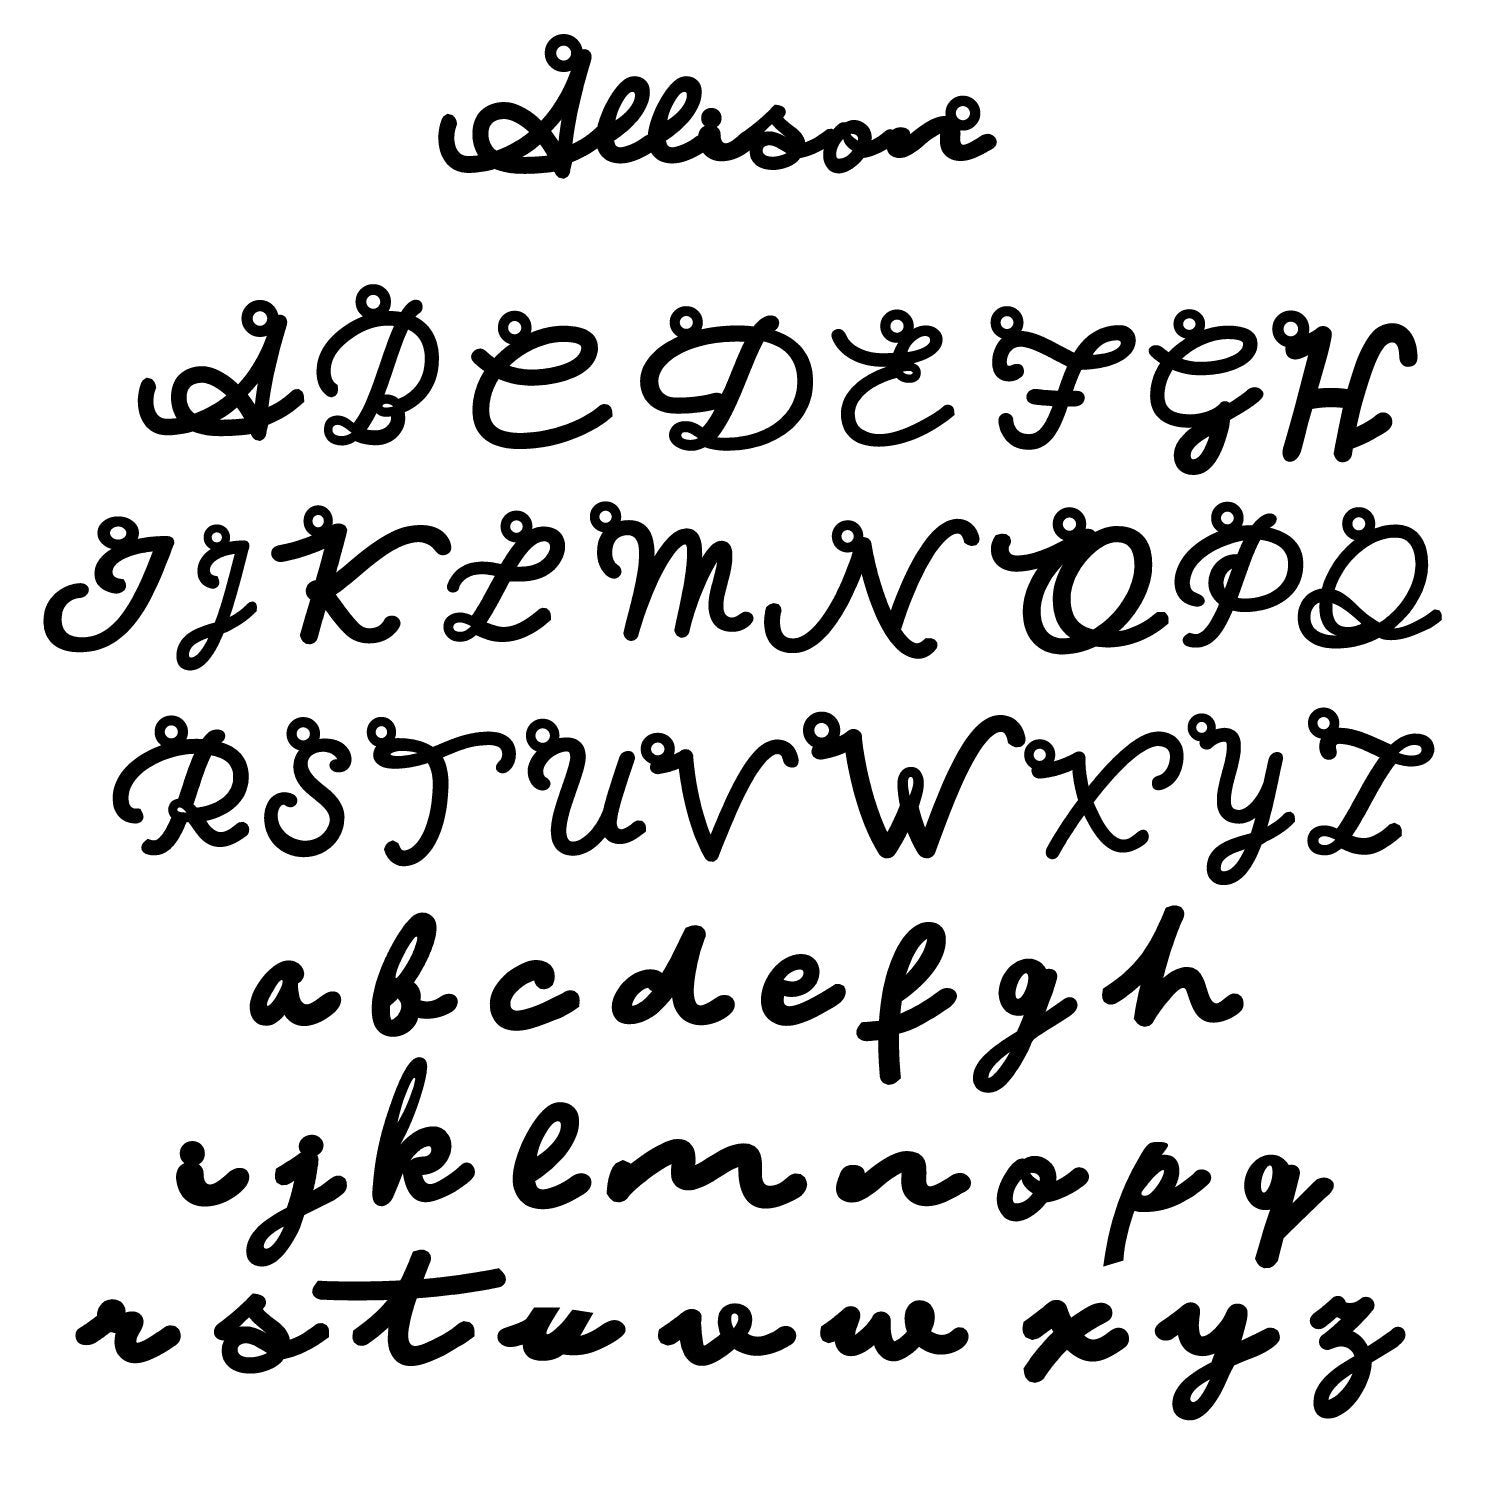 Allison
A B C D E F G H
I J K L M N O P Q
R S T U V W X Y Z
a b c d e f g h
i j k l m n o p q
r s t u v w x y z